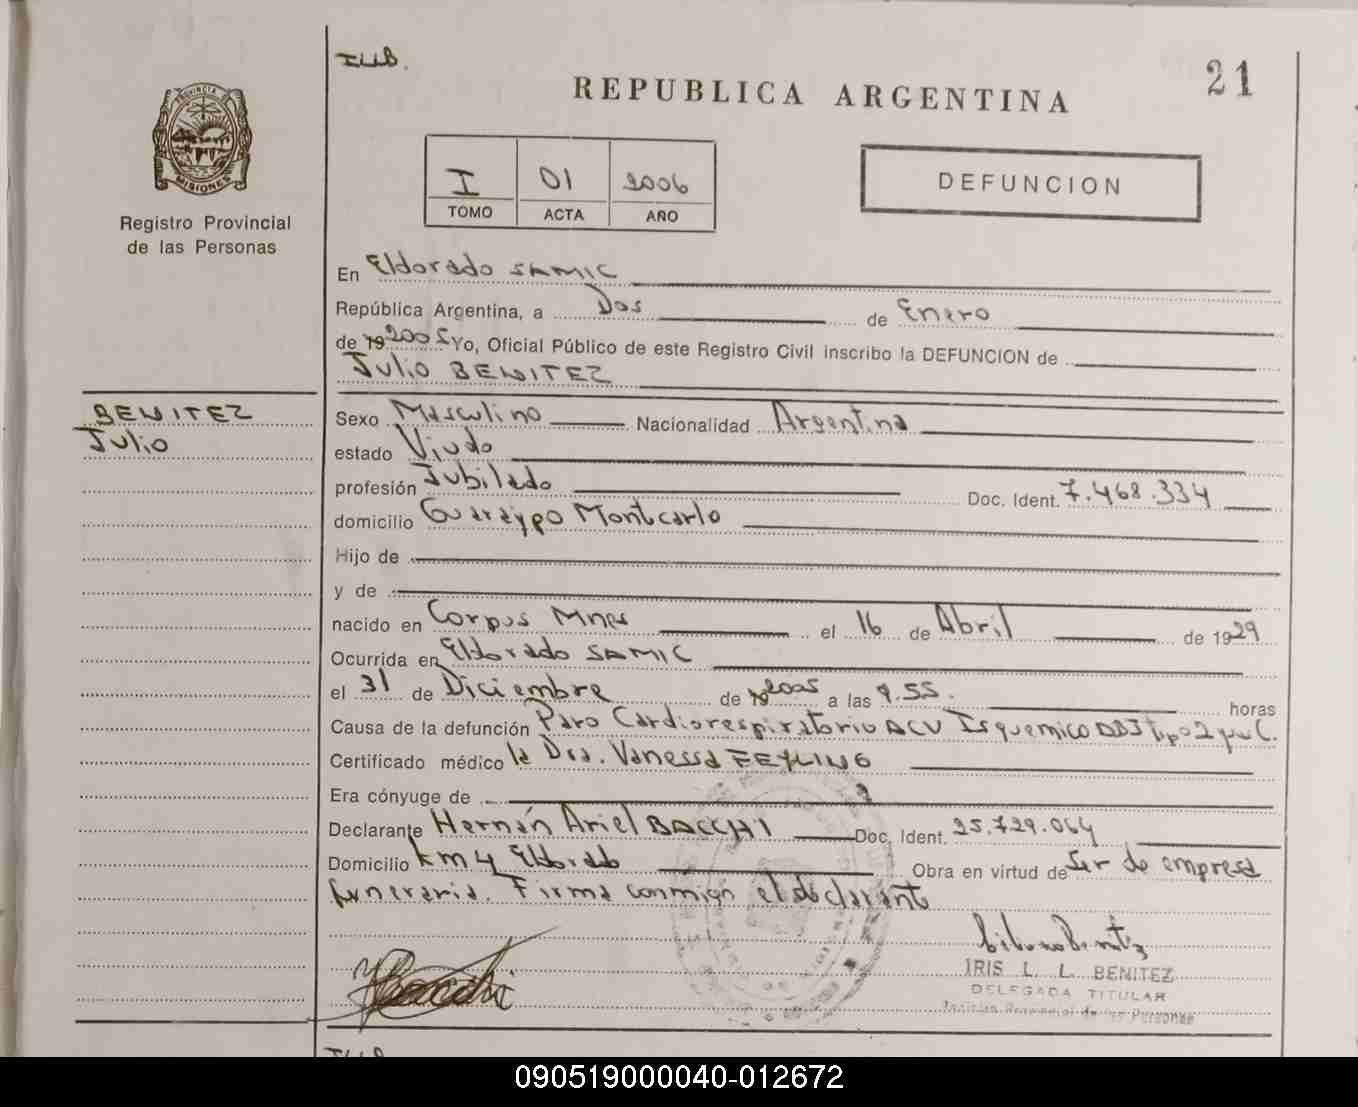 ILLB.
21
REPUBLICA ARGENTINA
PROVINCIA DE
MISIONES
Registro Provincial
de las Personas
I 01 2006
TOMO ACTA AÑO
DEFUNCION
En Eldorado SAMIC
República Argentina, a Dos de Enero
de 19 Yo, Oficial Público de este Registro Civil inscribo la DEFUNCION de
Julio BENITEZ
BENITEZ
Julio
Sexo Masculino Nacionalidad Argentina
estado Viudo
profesión Jubilado Doc. Ident. 7.468.334
domicilio Guaraypo Montecarlo
Hijo de
y de
nacido en Corpus Mnes el 16 de Abril de 1929
Ocurrida en Eldorado SAMIC
el 31 de Diciembre de 19 2005 a las 9.55. horas
Causa de la defunción Paro Cardiorespiratorio ACV Isquemico DBT tipo 2
Certificado médico la Dra. Vanessa
Era cónyuge de
Declarante Hernán Ariel BACCHI Doc. Ident. 25.729.064
Domicilio km 4 Eldorado Obra en virtud de Ser de empresa
funeraria. Firma conmigo el declarante
IRIS L. L. BENITEZ
DELEGADA TITULAR
Registro Provincial de las Personas
090519000040-012672